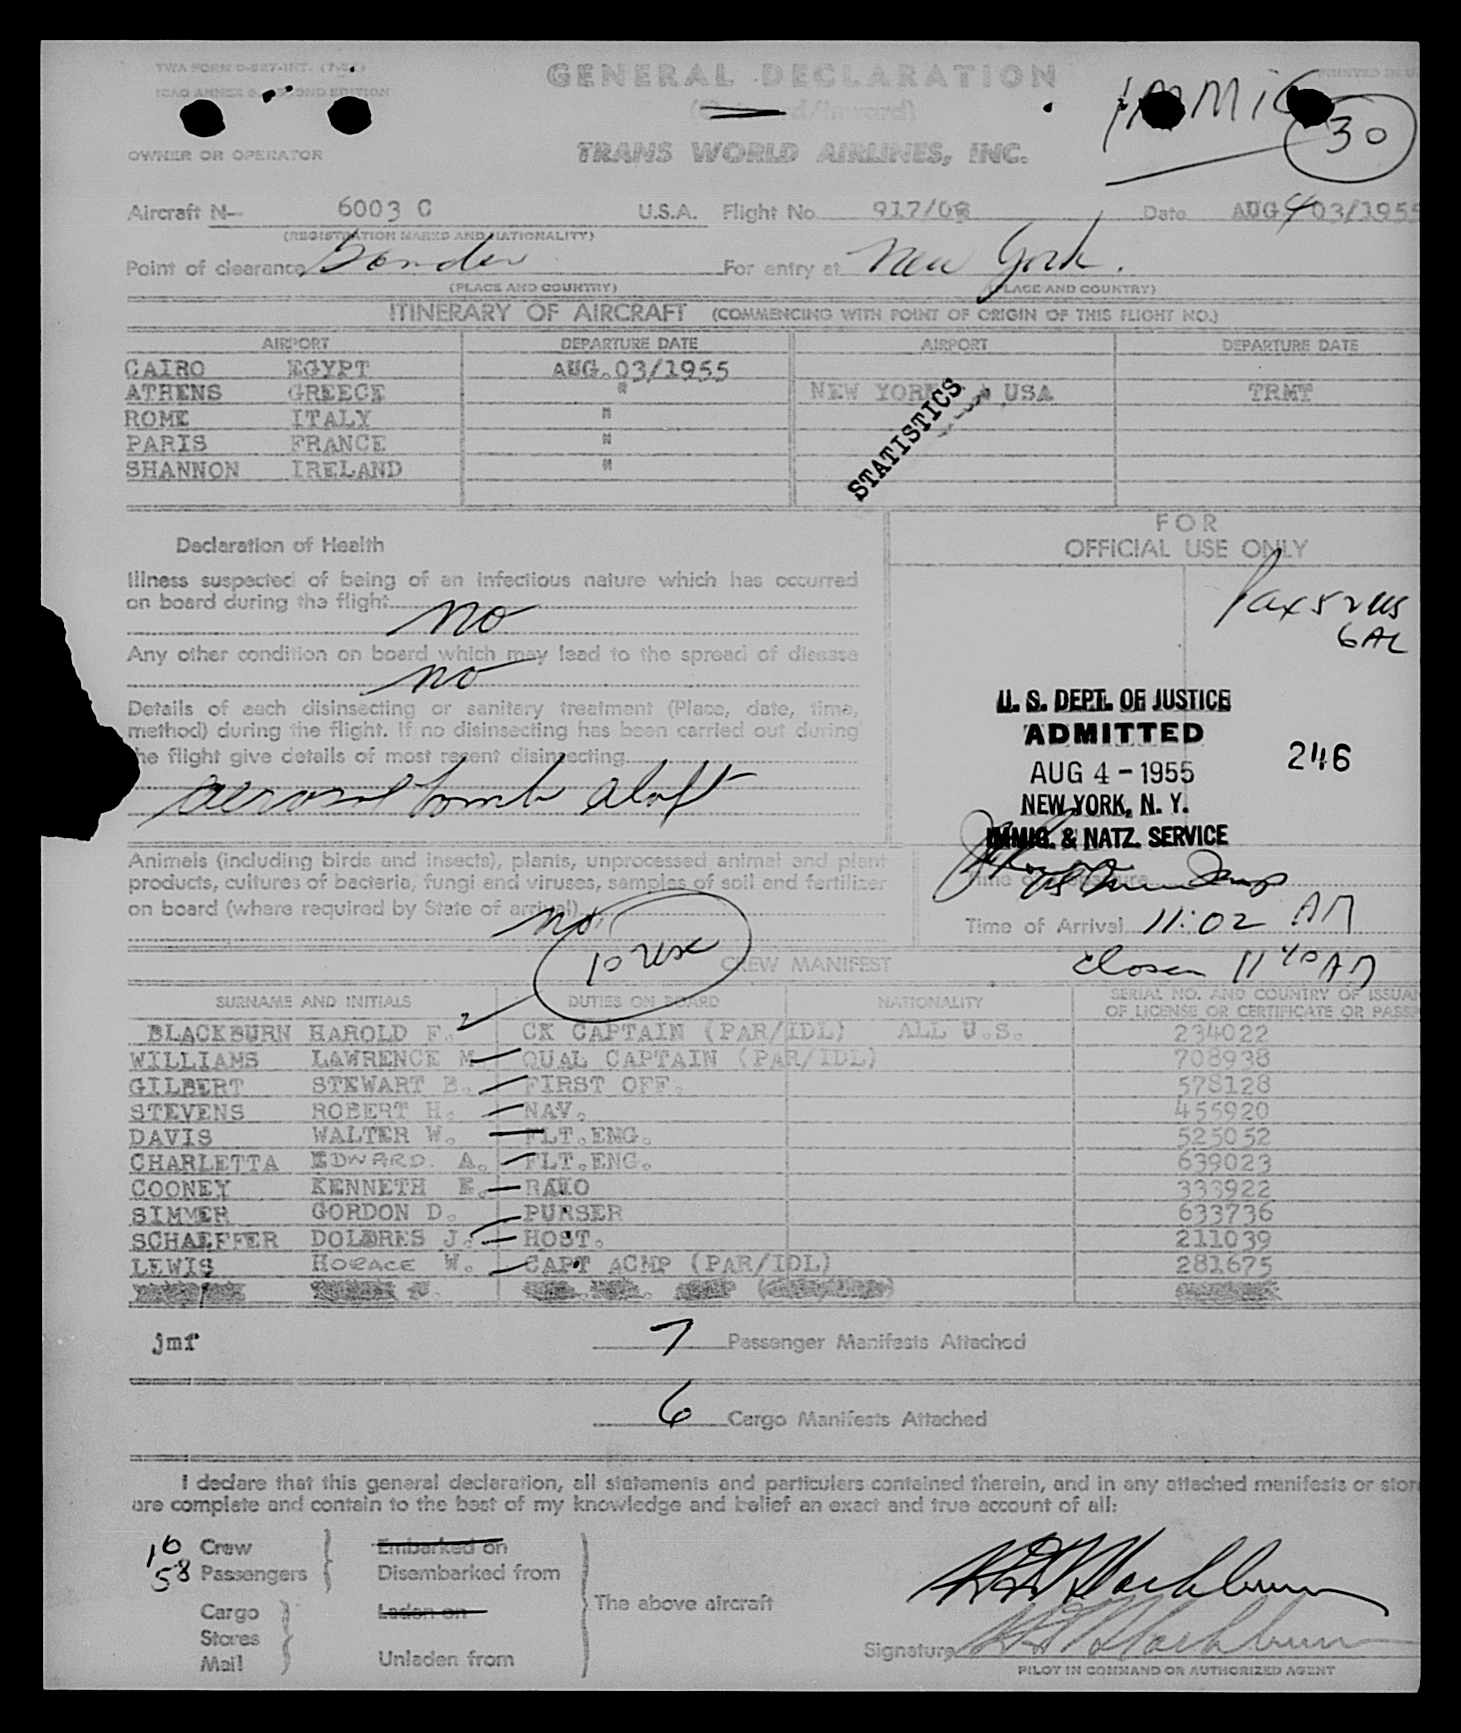 TWA FORM
GENERAL DECLARATION
IMMIG
30
OWNER OR OPERATOR
TRANS WORLD AIRLINES, INC.
Aircraft N- 6003 C U.S.A. Flight No. 917/08 Date AUG 4 03/1955
(REGISTRATION MARKS AND NATIONALITY)
Point of clearance Gander For entry at New York.
(PLACE AND COUNTRY) (PLACE AND COUNTRY)
ITINERARY OF AIRCRAFT (COMMENCING WITH POINT OF ORIGIN OF THIS FLIGHT NO.)
AIRPORT DEPARTURE DATE AIRPORT DEPARTURE DATE
CAIRO EGYPT AUG.03/1955
ATHENS GREECE " NEW YORK USA TRMT
ROME ITALY "
PARIS FRANCE "
SHANNON IRELAND "
STATISTICS
FOR
OFFICIAL USE ONLY
Declaration of Health
Illness suspected of being of an infectious nature which has occurred
on board during the flight no
Any other condition on board which may lead to the spread of disease
no
Details of each disinsecting or sanitary treatment (Place, date, time,
method) during the flight. If no disinsecting has been carried out during
the flight give details of most recent disinsecting
aerosol bomb aloft
Pax 52 US
6 AL
U. S. DEPT. OF JUSTICE
ADMITTED
AUG 4 - 1955
246
NEW YORK, N. Y.
IMMIG. & NATZ. SERVICE
Animals (including birds and insects), plants, unprocessed animal and plant
products, cultures of bacteria, fungi and viruses, samples of soil and fertilizer
on board (where required by State of arrival) no
Time of Arrival 11:02 AM
10 usc
CREW MANIFEST
11 40 AM
SURNAME AND INITIALS DUTIES ON BOARD NATIONALITY SERIAL NO. AND COUNTRY OF ISSUAN
OF LICENSE OR CERTIFICATE OR PASSP
BLACKBURN HAROLD F. CK CAPTAIN (PAR/IDL) ALL U.S. 234022
WILLIAMS LAWRENCE M QUAL CAPTAIN (PAR/IDL) 708938
GILBERT STEWART B. FIRST OFF. 578128
STEVENS ROBERT H. NAV. 455920
DAVIS WALTER W. FLT.ENG. 525052
CHARLETTA EDWARD. A. FLT.ENG. 639023
COONEY KENNETH E. RADIO 333922
SIMMER GORDON D. PURSER 633736
SCHAEFFER DOLORES J. HOST. 211039
LEWIS HORACE W. CAPT ACMP (PAR/IDL) 281675
jmf 7 Passenger Manifests Attached
6 Cargo Manifests Attached
I declare that this general declaration, all statements and particulars contained therein, and in any attached manifests or stor
are complete and contain to the best of my knowledge and belief an exact and true account of all:
10 Crew Embarked on
58 Passengers Disembarked from
The above aircraft
Cargo Laden on
Stores
Mail Unladen from
H F Blackburn
Signature H F Blackburn
PILOT IN COMMAND OR AUTHORIZED AGENT